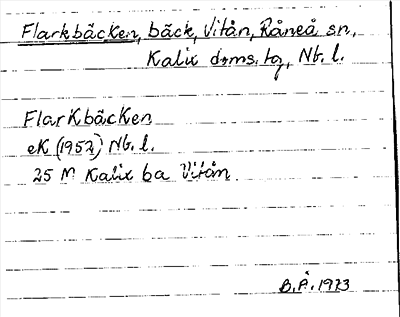 Flarkbäcken, bäck, Vitån, Råneå sn,
Kalix doms. tg, Nb. l.
Flarkbäcken
eK (1952) Nb. l.
25 M Kalix ba Vitån
B.Å. 1973